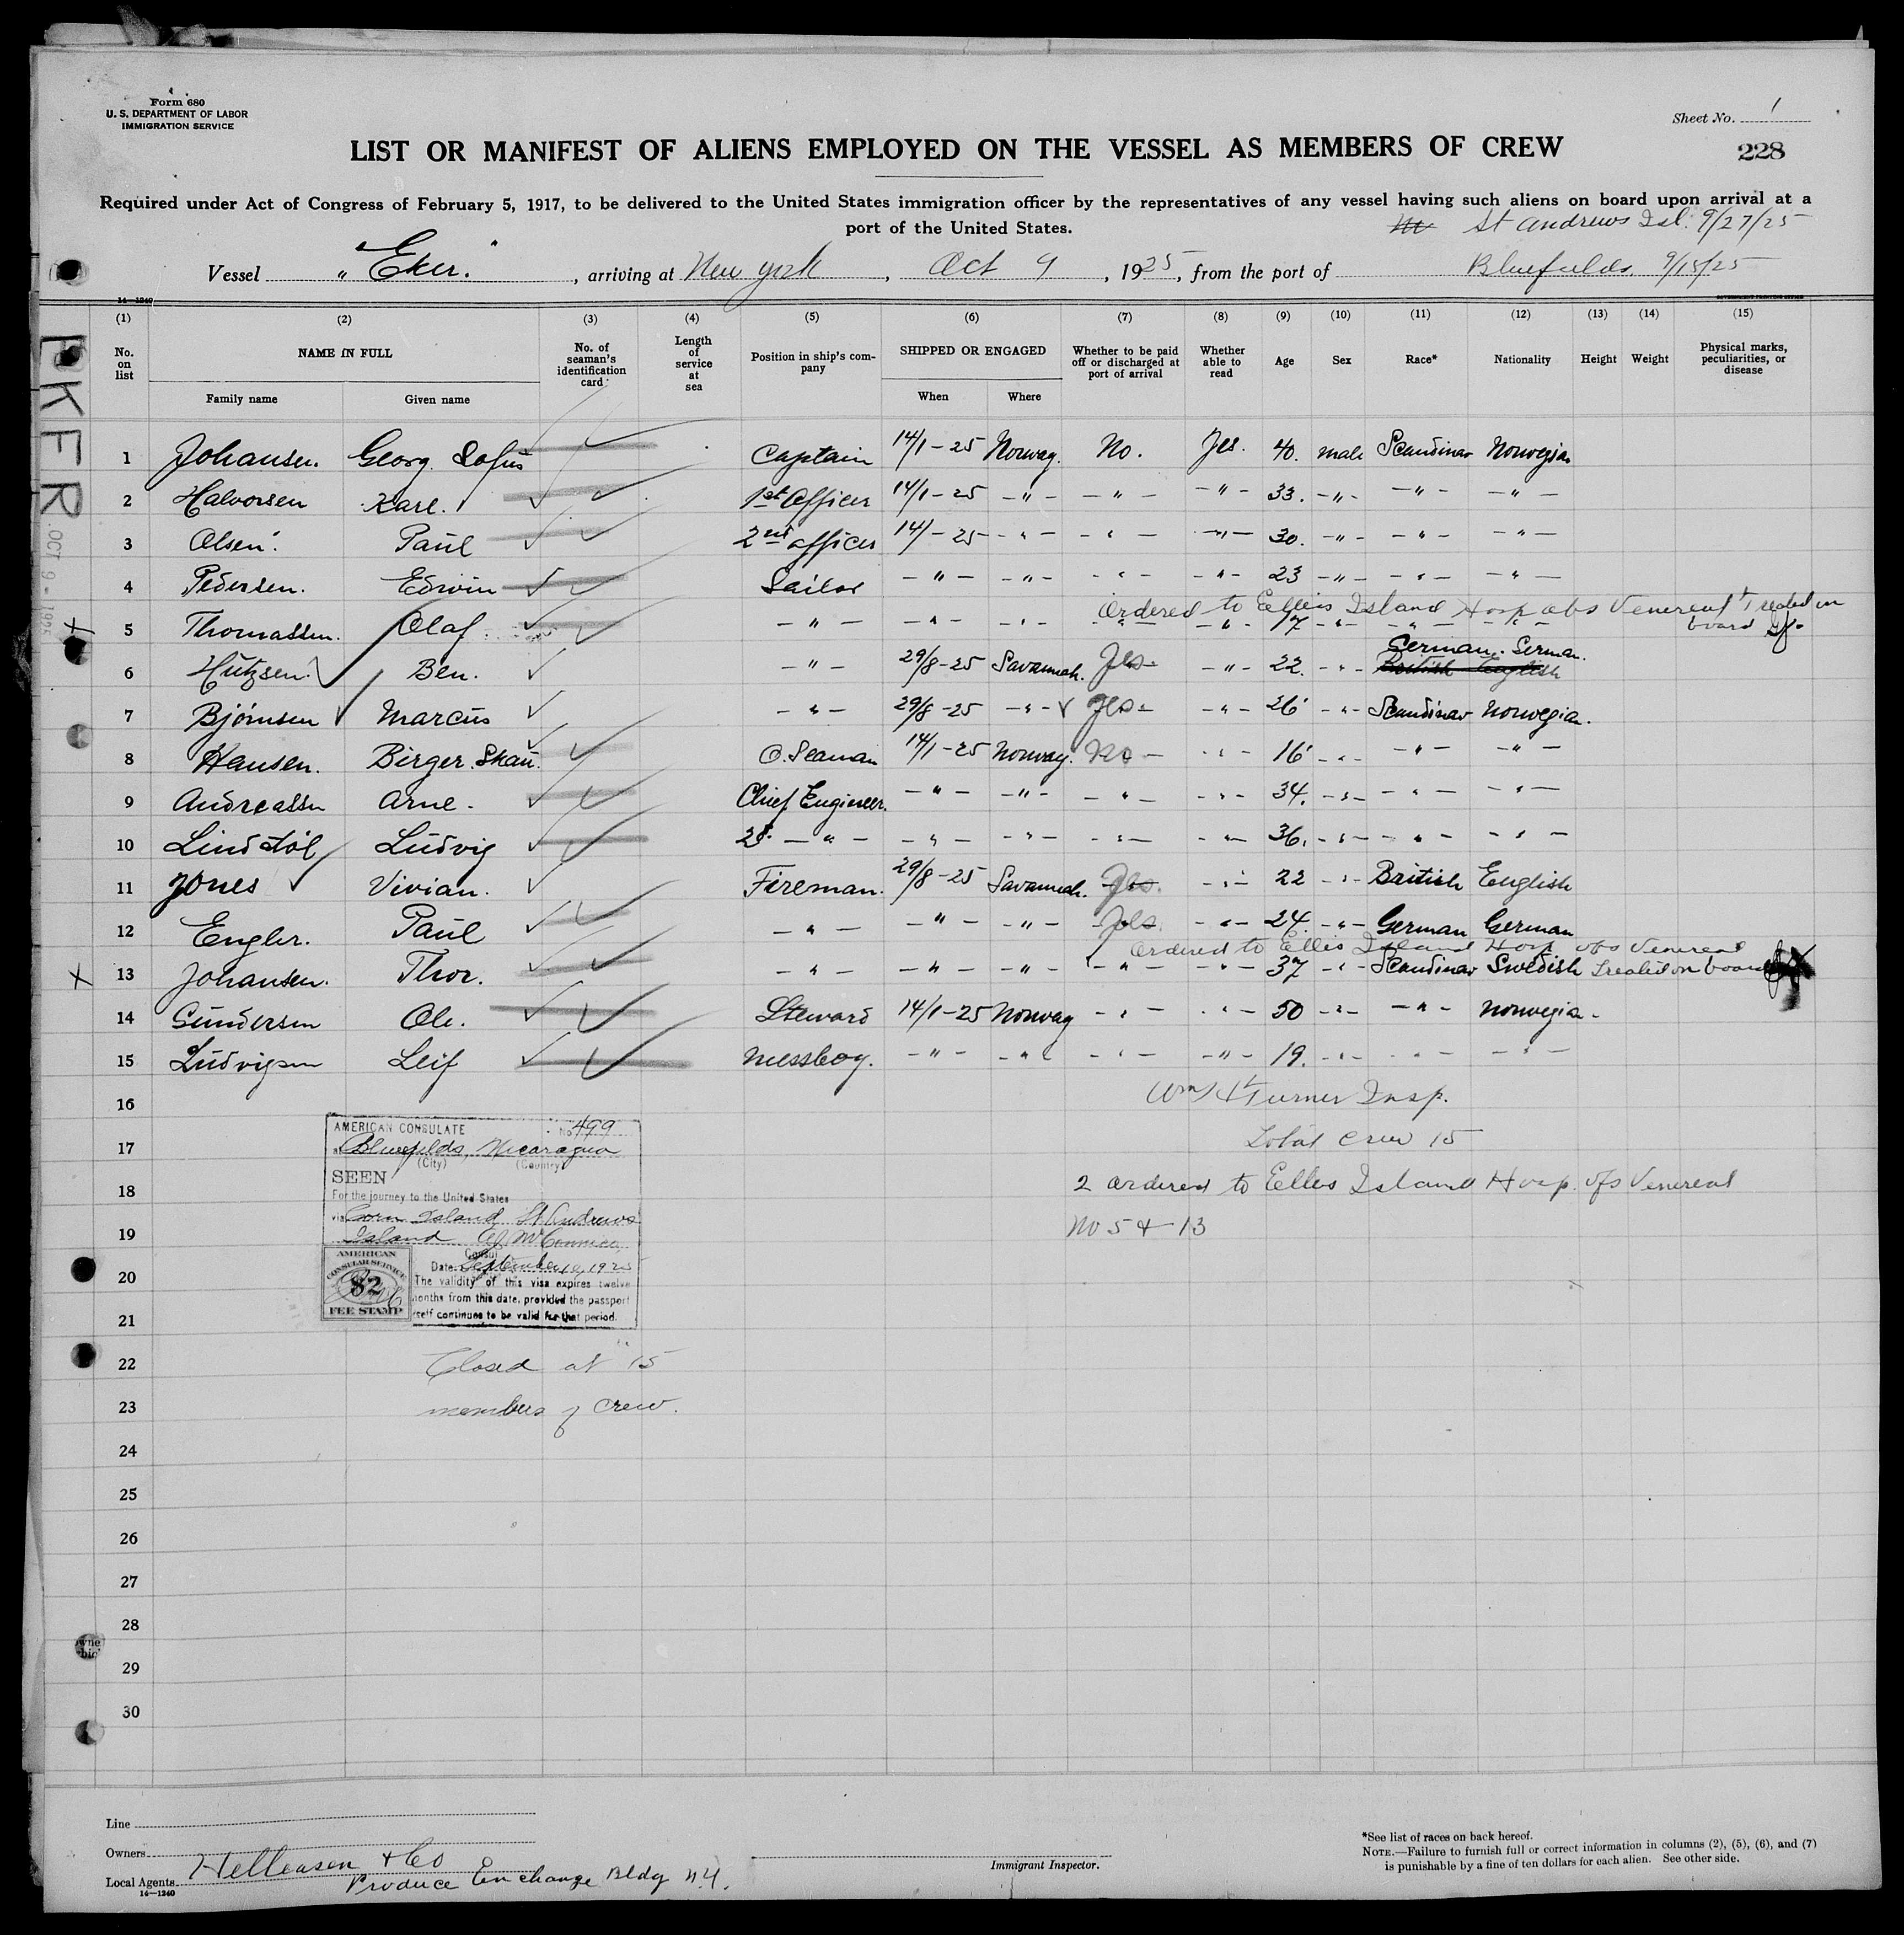 Form 680
U. S. DEPARTMENT OF LABOR
IMMIGRATION SERVICE
Sheet No. 1
LIST OR MANIFEST OF ALIENS EMPLOYED ON THE VESSEL AS MEMBERS OF CREW
228
Required under Act of Congress of February 5, 1917, to be delivered to the United States immigration officer by the representatives of any vessel having such aliens on board upon arrival at a
port of the United States.
St Andrews Isl. 9/27/25
Vessel "Eker." , arriving at New York , Oct 9 , 1925, from the port of Bluefields 9/15/25
14—1240
(1) (2) (3) (4) (5) (6) (7) (8) (9) (10) (11) (12) (13) (14) (15)
No. on list NAME IN FULL No. of seaman's identification card Length of service at sea Position in ship's company SHIPPED OR ENGAGED Whether to be paid off or discharged at port of arrival Whether able to read Age Sex Race* Nationality Height Weight Physical marks, peculiarities, or disease
Family name Given name When Where
1 Johansen. Georg Sofus Captain 14/1-25 Norway. No. Yes. 40. male Scandinav Norwegian
2 Halvorsen Kare. 1st Officer 14/1-25 -"- -"- -"- 33. -"- -"- -"-
3 Olsen. Paul 2nd officer 14/-25 -"- -"- -"- 30. -"- -"- -"-
4 Pedersen. Edwin Sailor -"- -"- -"- -"- 23 -"- -"- -"-
Ordered to Ellis Island Hosp obs Venereal Treated on
board
5 Thomassen. Olaf. -"- -"- -"- -"- -"- 17 -"- -"- -"-
German. German.
6 Hutzsen. Ben. -"- 29/8-25 Savannah. Yes. -"- 22. -"- British English
7 Bjornsen Marcus -"- 29/8-25 -"- Yes. -"- 26 -"- Scandinav Norwegian.
8 Hansen. Birger. Skau. O. Seaman 14/1-25 Norway. No -"- 16 -"- -"- -"-
9 Andreassen Arne. Chief Engineer. -"- -"- -"- -"- 34. -"- -"- -"-
10 Lindstol Ludvig 2 -"- -"- -"- -"- -"- 36. -"- -"- -"-
11 Jones Vivian. Fireman. 29/8-25 Savannah. Yes. -"- 22 -"- British English
12 Engler. Paul -"- -"- -"- Yes. -"- 24. -"- German German
Ordered to Ellis Island Hosp obs Venereal
13 Johansen. Thor. -"- -"- -"- -"- -"- 37 -"- Scandinav Swedish Treated on board
14 Gundersen Ole. Steward 14/1-25 Norway -"- -"- 50 -"- -"- Norwegia.
15 Ludvigsen Leif Messboy. -"- -"- -"- -"- 19. -"- -"- -"-
16
Turner Insp.
17
Total Crew 15
18
2 ordered to Ellis Island Hosp. obs Venereal
19
No 5 & 13
AMERICAN CONSULATE No 499
at Bluefields, Nicaragua
(City) (Country)
SEEN
For the journey to the United States
via Corn Island, St Andrews
Island
Consul
Date September 1925
The validity of this visa expires twelve
months from this date, provided the passport
itself continues to be valid for that period.
AMERICAN
CONSULAR SERVICE
$2
FEE STAMP
20
21
22
Closed at 15
23
members of crew.
24
25
26
27
28
29
30
OCT 9 - 1925
Line
Owners
Local Agents Helleasen & Co
Produce Exchange Bldg N.Y.
14—1240
Immigrant Inspector.
*See list of races on back hereof.
NOTE.—Failure to furnish full or correct information in columns (2), (5), (6), and (7)
is punishable by a fine of ten dollars for each alien. See other side.